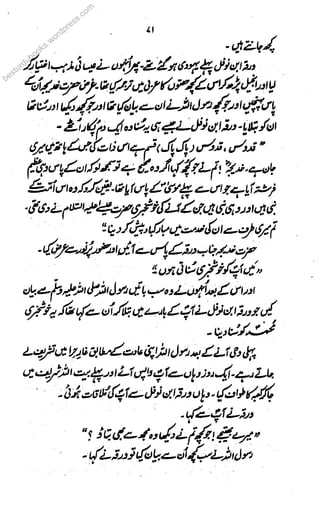 ۷۱
کچھ جانتے ہیں۔
ورقہ ابن نوفل پہلے یہودی ہو گئے تھے۔ پھر انہوں نے عیسائی مذہب اختیار کر
لیا اور انجیل پڑھ کر اس کے کچھ حصوں کا عربی میں ترجمہ کیا تھا۔ غرض حضرت خدیجہ اُن کے
پاس پہنچیں اور جو کچھ رسول اللہ نے ان سے بیان کیا تھا اور جو کچھ دیکھا اور سُنا تھا
ان کو بتلایا۔ ورقہ ابن نوفل نے جیسے ہی یہ سُنا وہ ایک دم پکار اُٹھے۔
"قدوس، قدوس (پاک پاک) قسم ہے اس ذات کی جس کے ہاتھ میں میری
جان ہے۔ خدیجہ! تم نے جو کچھ کہا اگر وہ سچ ہے تو سمجھ لو کہ ان کے پاس وہی عظیم
فرشتہ آیا ہے جو اس سے پہلے موسیٰ کے پاس آیا تھا۔ یقین کرو کہ وہ اس امت کے
نبی ہیں اور وہی نبی ہیں جن کے آنے کی خوشخبری حضرت عیسیٰ علیہ السلام نے دی تھی۔
تم میری طرف سے ان کی خدمت میں مبارکباد پیش کر دینا۔"
حضرت خدیجہ جناب ورقہ کے پاس سے آئیں اور حضور پُرنور سے عرض کیا۔
"میں آپ کو خوشخبری سُناتی ہوں"
اور اس کے بعد انہوں نے وہ سب باتیں رسول اللہ صلی اللہ علیہ وسلم سے بیان
کیں جو ورقہ ابن نوفل نے آپ کے بارے میں بتلا کر اُن سے کہا تھا کہ یہ خوشخبری
محمد کو سُنا دینا۔
پہلی وحی آنے کے بعد رسول اللہ اپنی عادت کے مطابق غارِ حرا میں تشریف لے
جاتے رہے۔ ایک روز وہاں سے آپ واپس آئے اور پہلے بیت اللہ شریف میں
جا کر کعبہ کا طواف کیا۔ وہاں ورقہ ابن نوفل سے آپ کی ملاقات ہوئی۔
ورقہ نے آپ سے کہا۔
"میرے بھتیجے! جو کچھ تم نے دیکھا وہ مجھ سے بھی بتاؤ؟"
رسول اللہ نے سب کچھ اُن سے بیان کیا تو ورقہ نے کہا۔
besturdubooks.wordpress.com